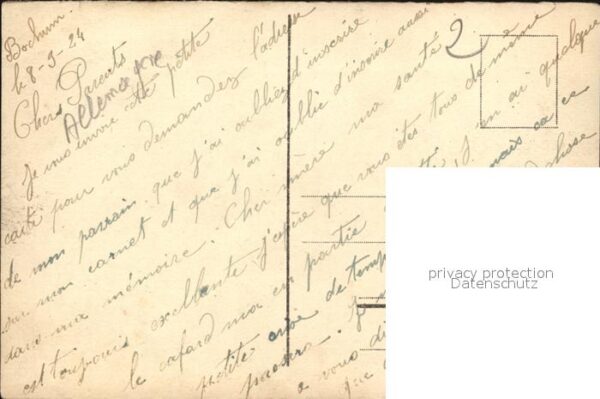 Bochum
le 8-5-24
Chers Parents
Allemagne
Je vous envoie cette petite
carte pour vous demandez l'adresse
de mon parrain que j'ai oubliez d'inscrire
sur mon carnet et que j'ai oublié d'inscrire aussi
dans ma mémoire. Cher mère ma santé
est toujours excellente j'espère que vous êtes tous de même
le cafard m'a en partie
j'en ai quelque
petite crise de temp
mais ça ce
passera.
chose
a vous di
que
2
privacy protection
Datenschutz